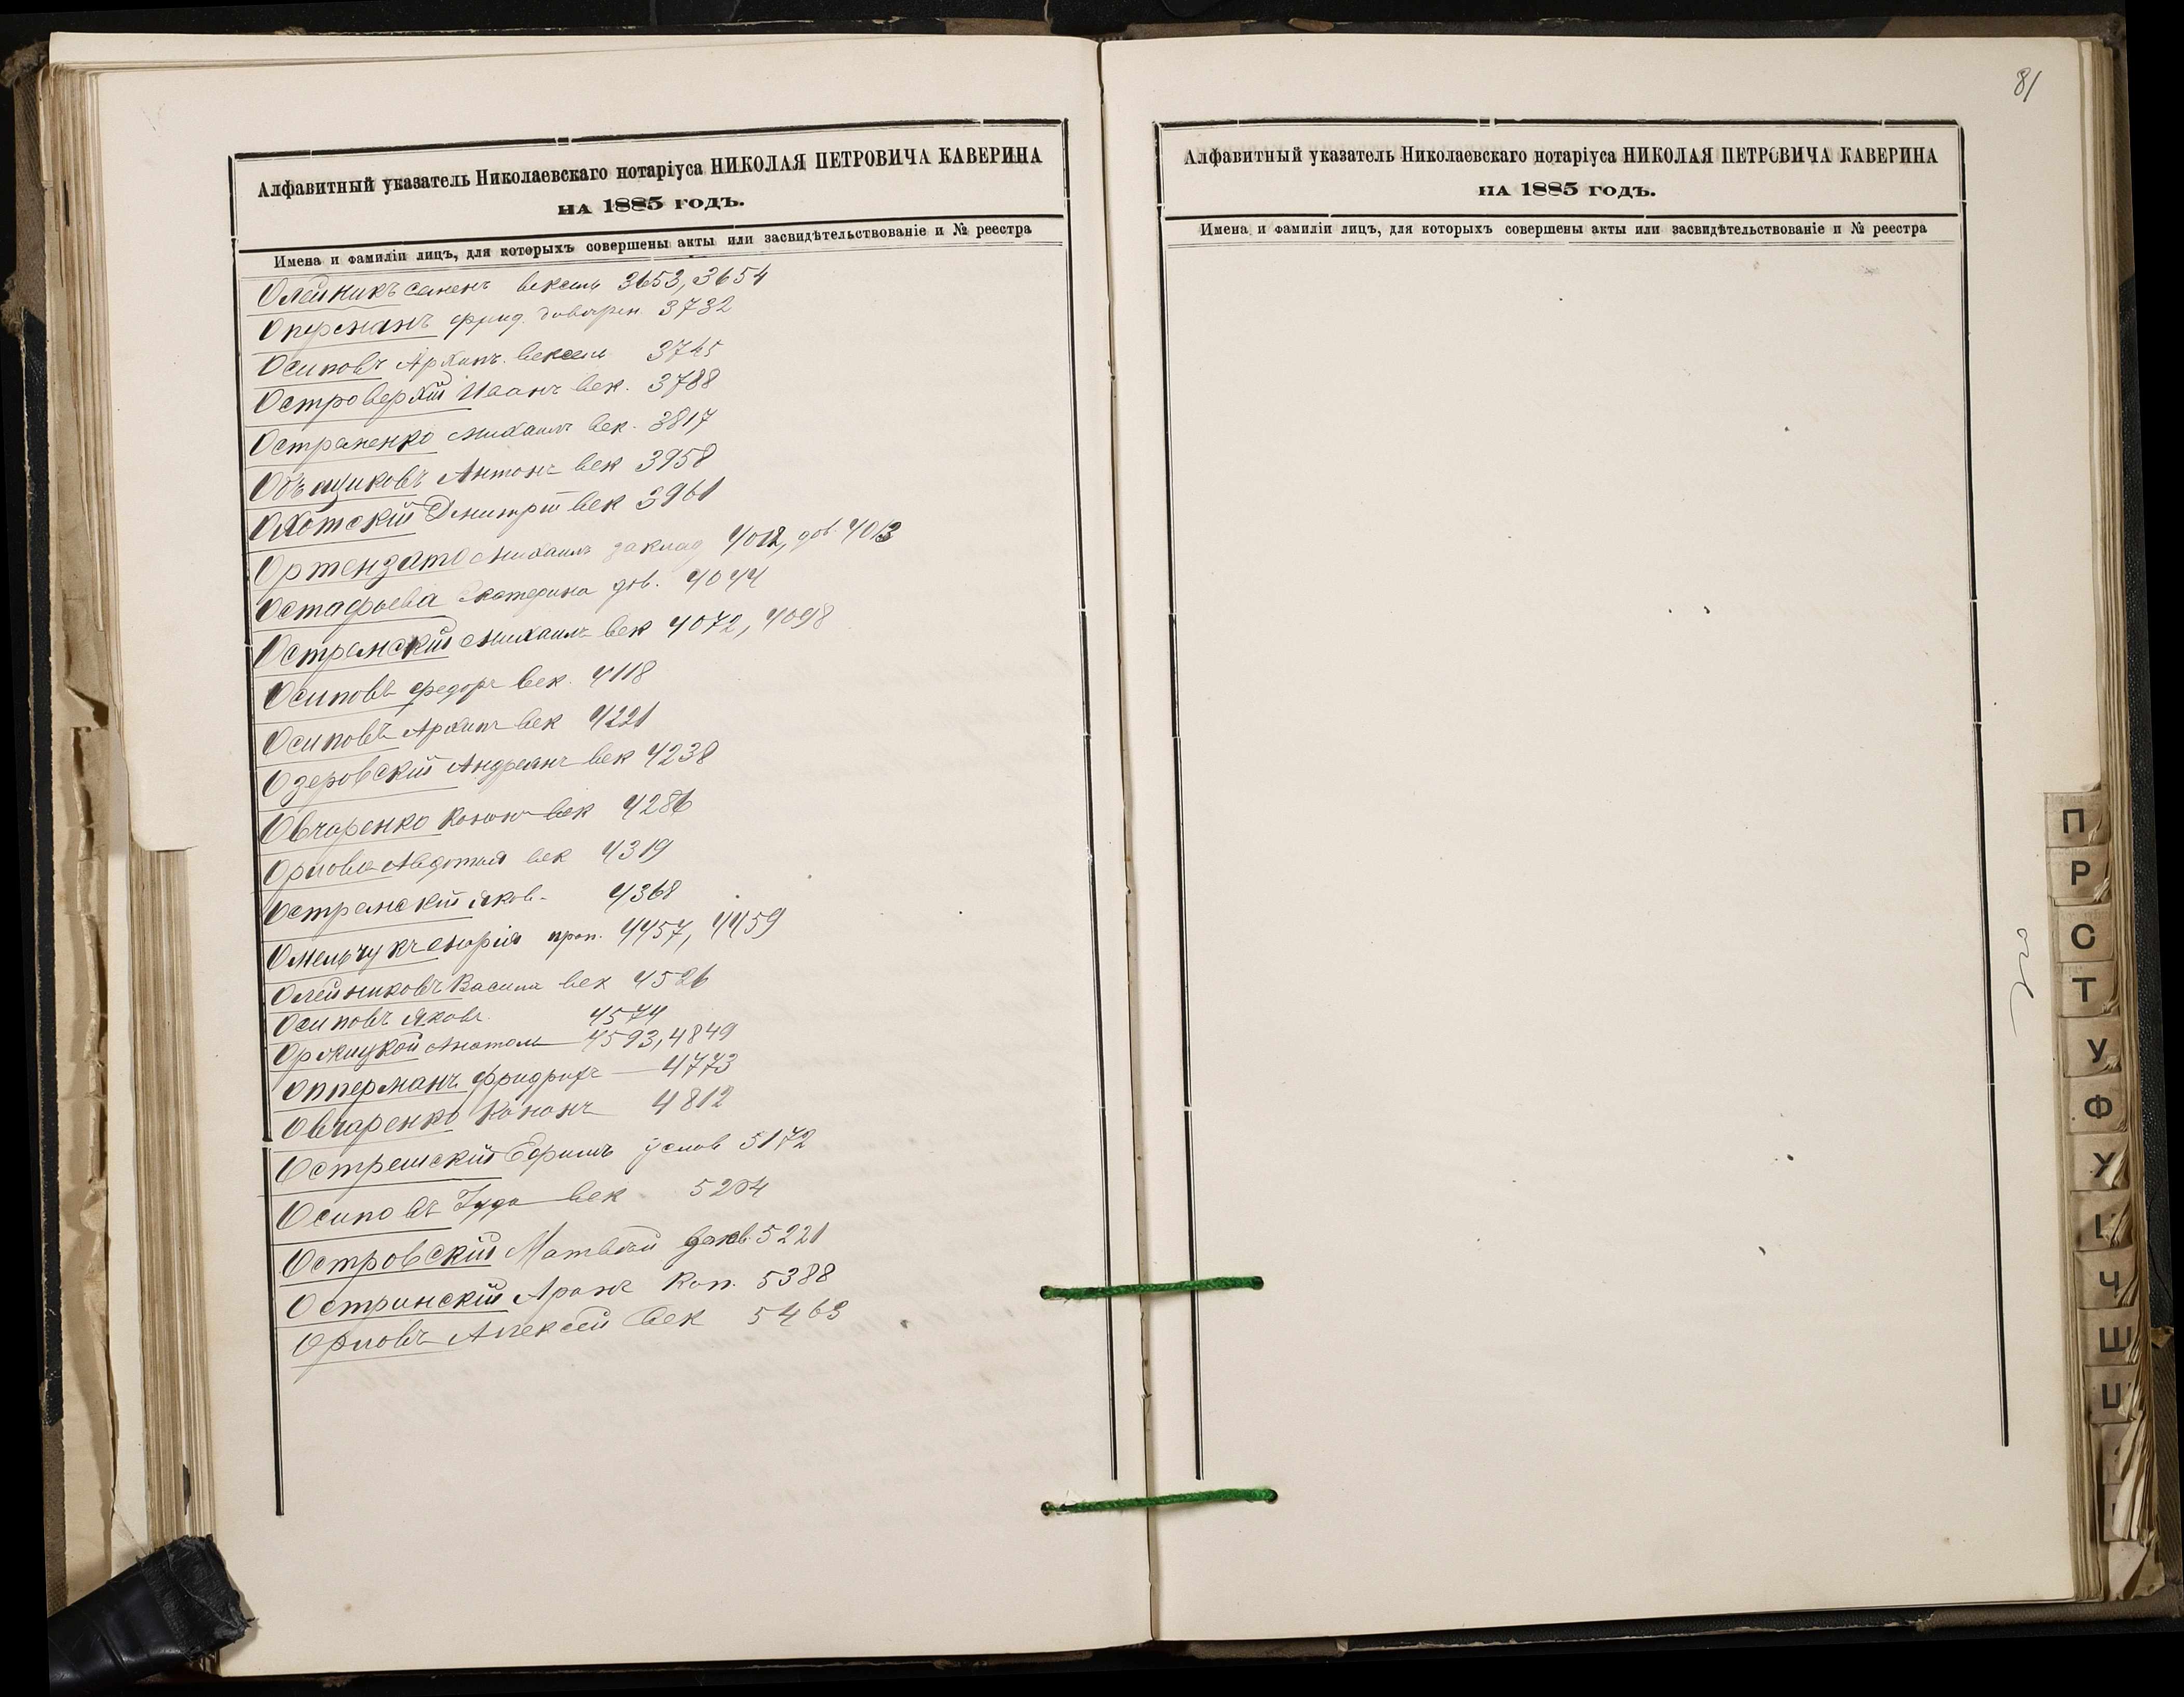 Алфавитный указатель Николаевскаго нотаріуса НИКОЛАЯ ПЕТРОВИЧА КАВЕРИНА
НА 1885 ГОДЪ.
Имена и фамиліи лицъ, для которыхъ совершены акты или засвидѣтельствованіе и № реестра
Олейникъ Семенъ вексель 3653, 3654
Оперманъ Фрид. доверен. 3732
Осиповъ Архипъ. вексель 3765
Островерхій Иванъ век. 3788
Остраненко Михаилъ век. 3817
Объещиковъ Антонъ век 3958
Охотскій Дмитрій век 3961
Ортензато Михаилъ заклад 4012, дов. 4013
Остафьева Екатерина дов. 4044
Остремскій Михаилъ век 4072, 4098
Осиповъ Федоръ век. 4118
Осиповъ Архипъ век 4221
Озеровскій Андреанъ век 4238
Овчаренко Кононъ век 4286
Орлова Авдотья век 4319
Остремскій Яков. 4368
Омельчукъ Марія 4457, 4459
Олейниковъ Василій век 4526
Осиповъ Яковъ 4574
Оржицкой Анатолій 4593, 4849
Опперманъ Фридрихъ 4773
Овчаренко Кононъ 4812
Острешскій Ефимъ услов 5172
Осиповъ Іуда век 5204
Островскій Матвѣй 5221
Остринскій Аронъ Коп. 5388
Орловъ Алексѣй век 5463
81
Алфавитный указатель Николаевскаго нотаріуса НИКОЛАЯ ПЕТРОВИЧА КАВЕРИНА
НА 1885 ГОДЪ.
Имена и фамиліи лицъ, для которыхъ совершены акты или засвидѣтельствованіе и № реестра
П
Р
С
Т
У
Ф
Х
Ц
Ч
Ш
Щ